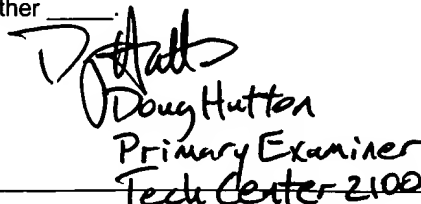 ther ____.
D Hutt
Doug Hutton
Primary Examiner
Tech Center 2100